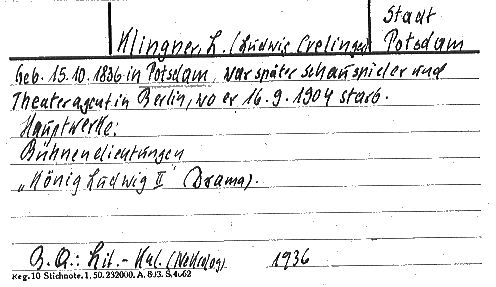 Stadt
Klingner, L. (Ludwig Crelinger) Potsdam
Geb. 15.10.1836 in Potsdam, war später Schauspieler und
Theateragent in Berlin, wo er 16.9.1904 starb.
Hauptwerke:
Bühnendichtungen
„König Ludwig II" (Drama).
B. Q.: Lit.-Kal. (Nekrolog) 1936
Reg. 10 Stichnote. 1. 50. 232000. A. 8/3. S. 4062